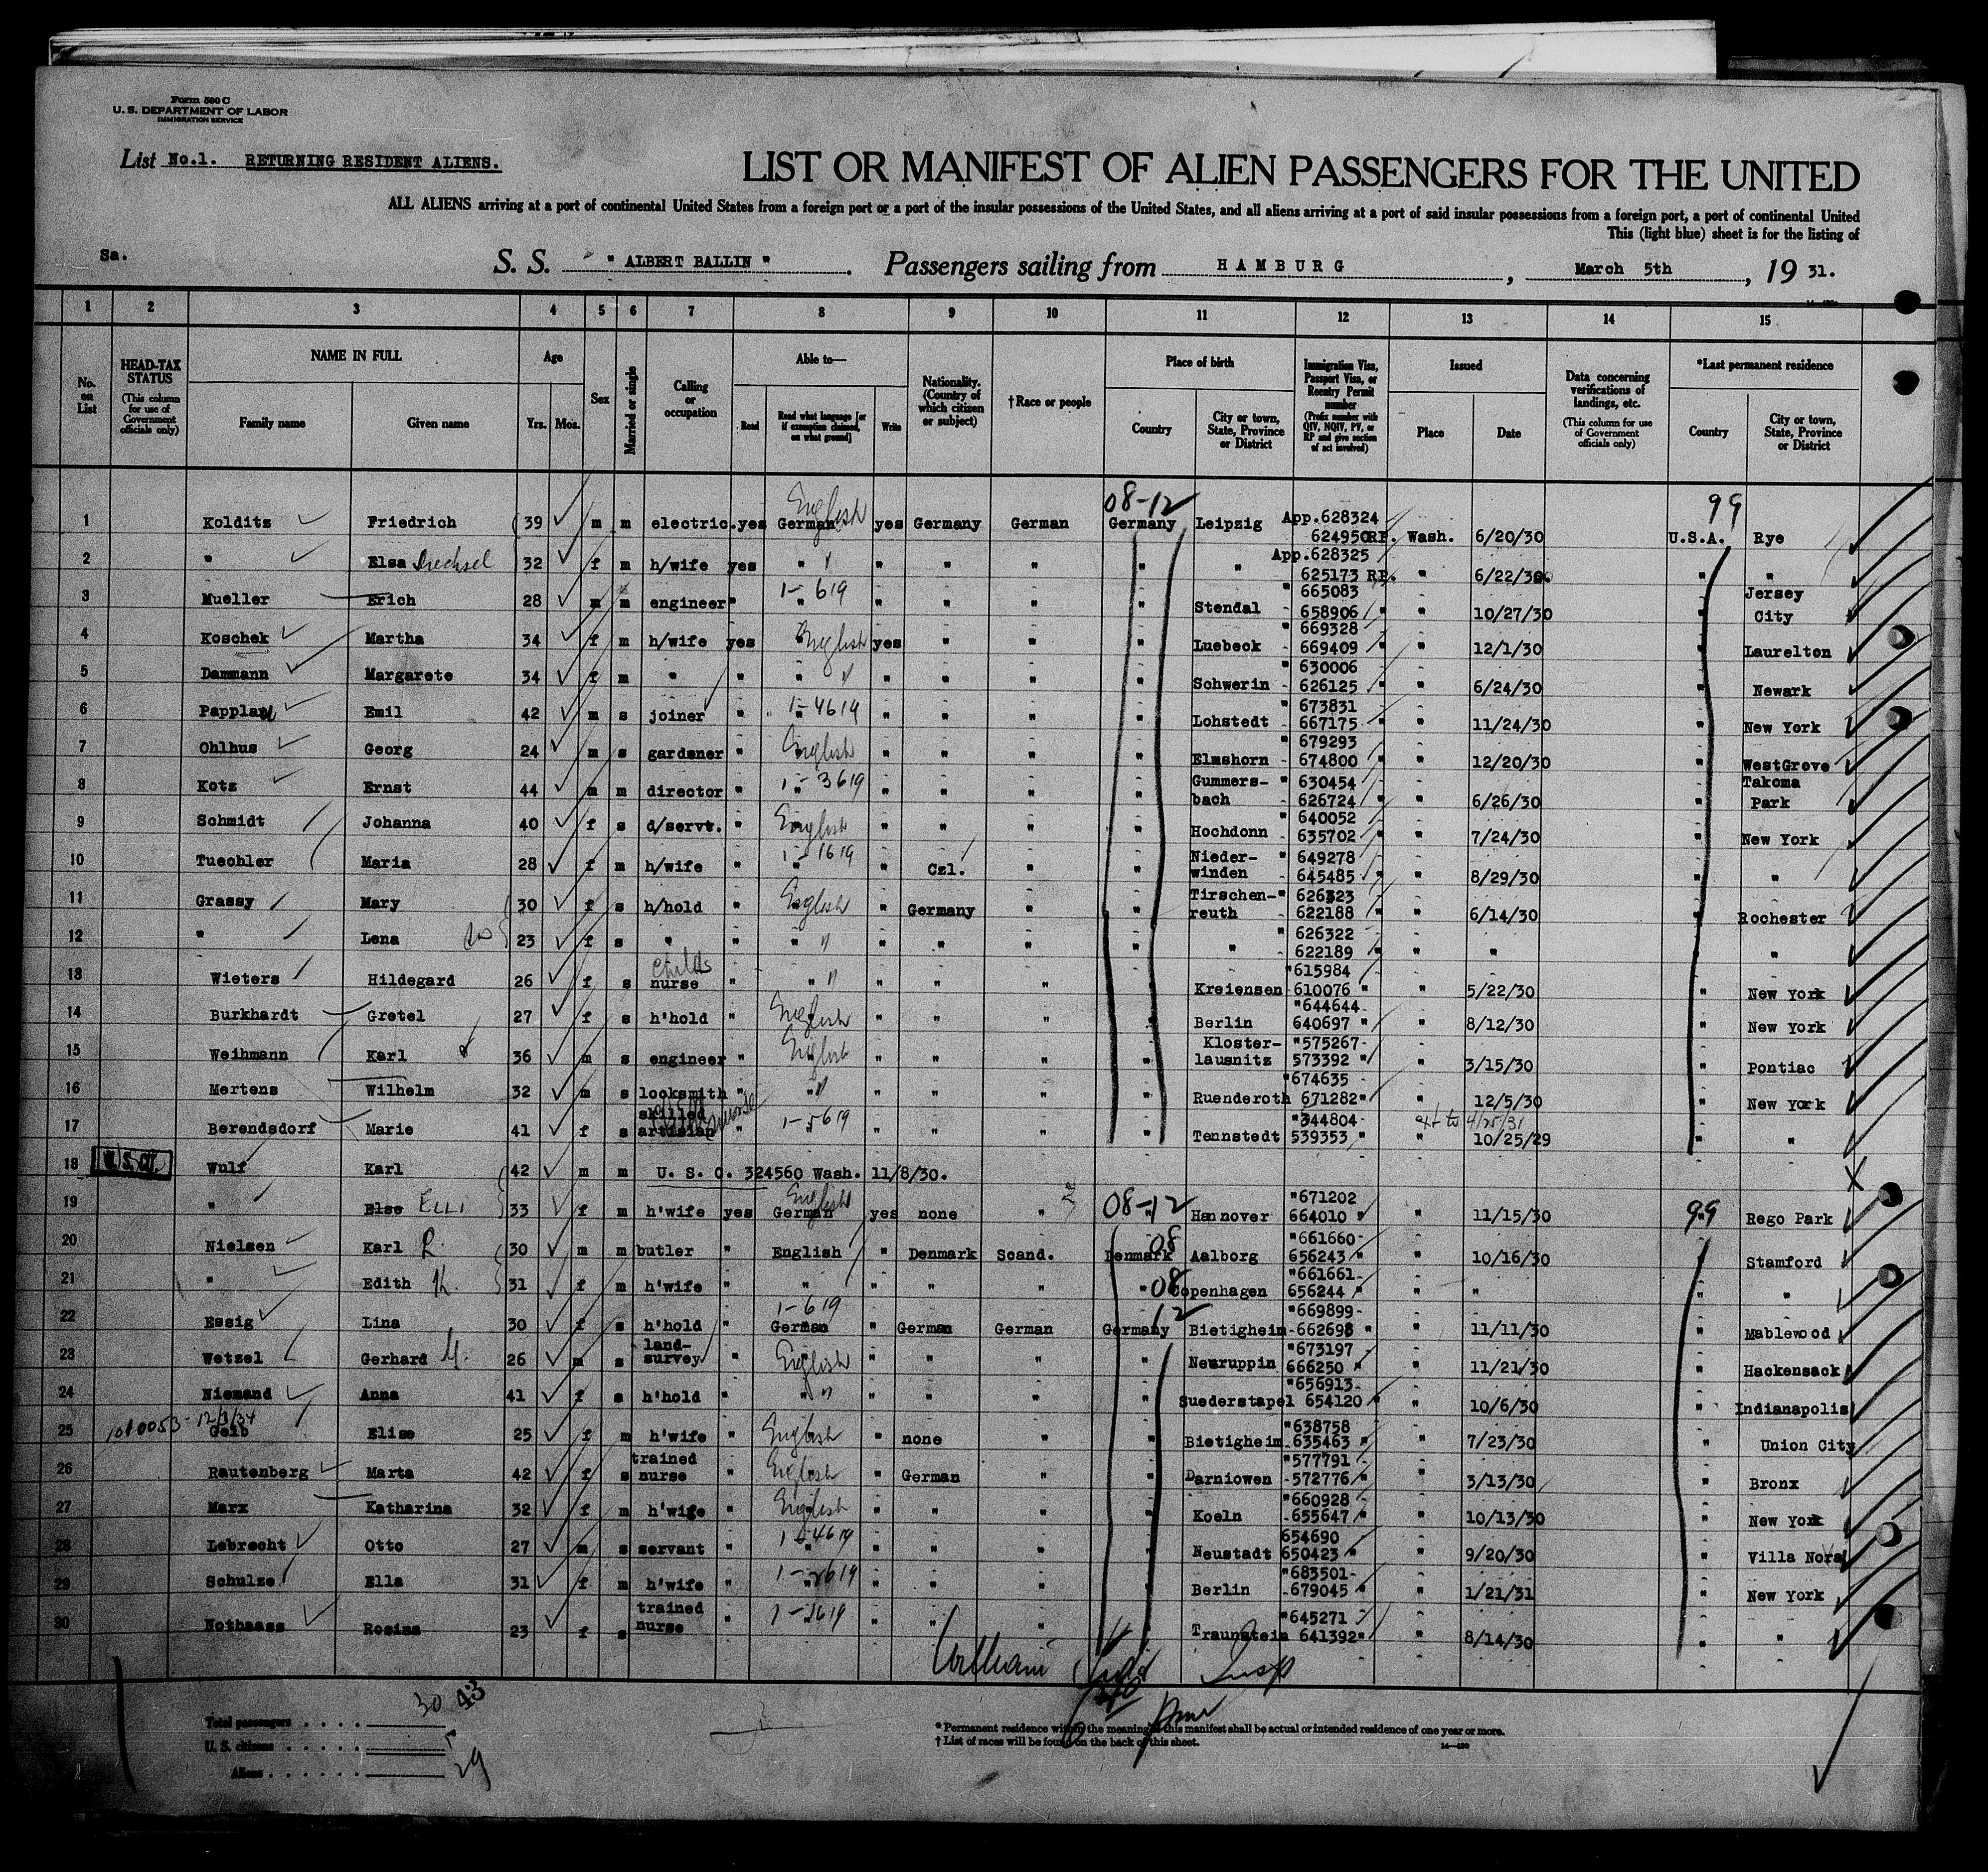 Form 500 C
U. S. DEPARTMENT OF LABOR
IMMIGRATION SERVICE
List No.1. RETURNING RESIDENT ALIENS.
LIST OR MANIFEST OF ALIEN PASSENGERS FOR THE UNITED
ALL ALIENS arriving at a port of continental United States from a foreign port or a port of the insular possessions of the United States, and all aliens arriving at a port of said insular possessions from a foreign port, a port of continental United
This (light blue) sheet is for the listing of
Sa.
S. S. " ALBERT BALLIN " . Passengers sailing from HAMBURG , March 5th , 19 31.
1 2 3 4 5 6 7 8 9 10 11 12 13 14 15
No. on List
HEAD-TAX STATUS (This column for use of Government officials only)
NAME IN FULL Family name Given name
Age Yrs. Mos.
Sex
Married or single
Calling or occupation
Able to— Read Read what language [or if exemption claimed, on what ground] Write
Nationality. (Country of which citizen or subject)
†Race or people
Place of birth Country City or town, State, Province or District
Immigration Visa, Passport Visa, or Reentry Permit number (Prefix number with QIV, NQIV, PV, or RP and give section of act involved)
Issued Place Date
Data concerning verifications of landings, etc. (This column for use of Government officials only)
*Last permanent residence Country City or town, State, Province or District
08-12 99
1 Kolditz Friedrich 39 m m electric. yes German English yes Germany German Germany Leipzig App.628324 624950RP. Wash. 6/20/30 U.S.A. Rye
2 " Elsa Drechsel 32 f m h/wife yes " " " " " " " App.628325 625173 RP. " 6/22/30. " "
3 Mueller Erich 28 m m engineer " 1-619 " " " " " Stendal " 665083 658906 " " 10/27/30 " Jersey City
4 Koschek Martha 34 f m h/wife yes " English yes " " " Luebeck " 669328 669409 " " 12/1/30 " Laurelton
5 Dammann Margarete 34 f m " " " " " " " " Schwerin " 630006 626125 " " 6/24/30 " Newark
6 Emil 42 m s joiner " 1-4619 " " " " " Lohstedt " 673831 667175 " " 11/24/30 " New York
7 Ohlhus Georg 24 m s gardener " English " " " " Elmshorn " 679293 674800 " " 12/20/30 " WestGrove
8 Kotz Ernst 44 m m director " 1-3619 " " " " " Gummers-bach " 630454 626724 " " 6/26/30 " Takoma Park
9 Schmidt Johanna 40 f s d/servt. " English " " " " Hochdonn " 640052 635702 " " 7/24/30 " New York
10 Tuechler Maria 28 f m h/wife " 1-1619 " " Czl. " " Nieder-winden " 649278 645485 " " 8/29/30 " "
11 Grassy Mary 30 f s h/hold " English " Germany " " Tirschen-reuth " 626323 622188 " " 6/14/30 " Rochester
12 " Lena 23 f s " " " " " " " " " " 626322 622189 " " " " "
13 Wieters Hildegard 26 f s Childs nurse " " " " " " " Kreiensen "615984 610076 " " 5/22/30 " New York
14 Burkhardt Gretel 27 f s h'hold " English " " " " Berlin "644644 640697 " " 8/12/30 " New York
15 Weihmann Karl 36 m s engineer " English " " " " Kloster-lausnitz "575267 573392 " " 3/15/30 " Pontiac
16 Mertens Wilhelm 32 m s locksmith " " " " " " " Ruenderoth "674635 671282" " 12/5/30 " New York
17 Berendsdorf Marie 41 f s skilled artisian nurse " 1-5619 " " " " Tennstedt "344804 539353 " " ext to 4/25/31 10/25/29 " "
18 U.S.Cit. Wulf Karl 42 m m U. S. C. 324560 Wash. 11/8/30. X
19 " Else ELLI 33 f m h'wife yes German English yes none " 08-12 " Hannover "671202 664010 " " 11/15/30 99 " Rego Park
20 Nielsen Karl R. 30 m m butler " English " Denmark Scand. Denmark 08 Aalborg "661660 656243 " " 10/16/30 " Stamford
21 " Edith K. 31 f m h'wife " " " " " " 08 Copenhagen "661661 656244 " " " " "
22 Essig Lina 30 f s h'hold " 1-619 German " German German Germany 12 Bietigheim "669899 662698 " " 11/11/30 " Mablewood
23 Wetzel Gerhard M. 26 m s land-survey " English " " " " Neuruppin "673197 666250 " " 11/21/30 " Hackensack
24 Niemand Anna 41 f s h'hold " " " " " " " Suederstapel "656913 654120 " " 10/6/30 " Indianapolis
25 1010053-12/3/34 Geib Elise 25 f m h'wife " English " none " " Bietigheim "638758 635463 " " 7/23/30 " Union City
26 Rautenberg Marta 42 f s trained nurse " English " German " " Darniowen "577791 572776 " " 3/13/30 " Bronx
27 Marx Katharina 32 f m h'wife " English " " " " Koeln "660928 655647 " " 10/13/30 " New York
28 Lebrecht Otto 27 m s servant " 1-4619 " " " " " Neustadt 654690 650423 " " 9/20/30 " Villa Nora
29 Schulze Ella 31 f m h'wife " 1-2619 " " " " " Berlin "683501 679045 " " 1/21/31 " New York
30 Nothaass Rosina 23 f s trained nurse " 1-3619 " " " " Traunstein "645271 641392" " 8/14/30 " "
Insp
Total passengers . . . . 30 43
U. S. citizens . . . . .
Aliens . . . . . . 29
* Permanent residence within the meaning of this manifest shall be actual or intended residence of one year or more.
† List of races will be found on the back of this sheet.
14—430